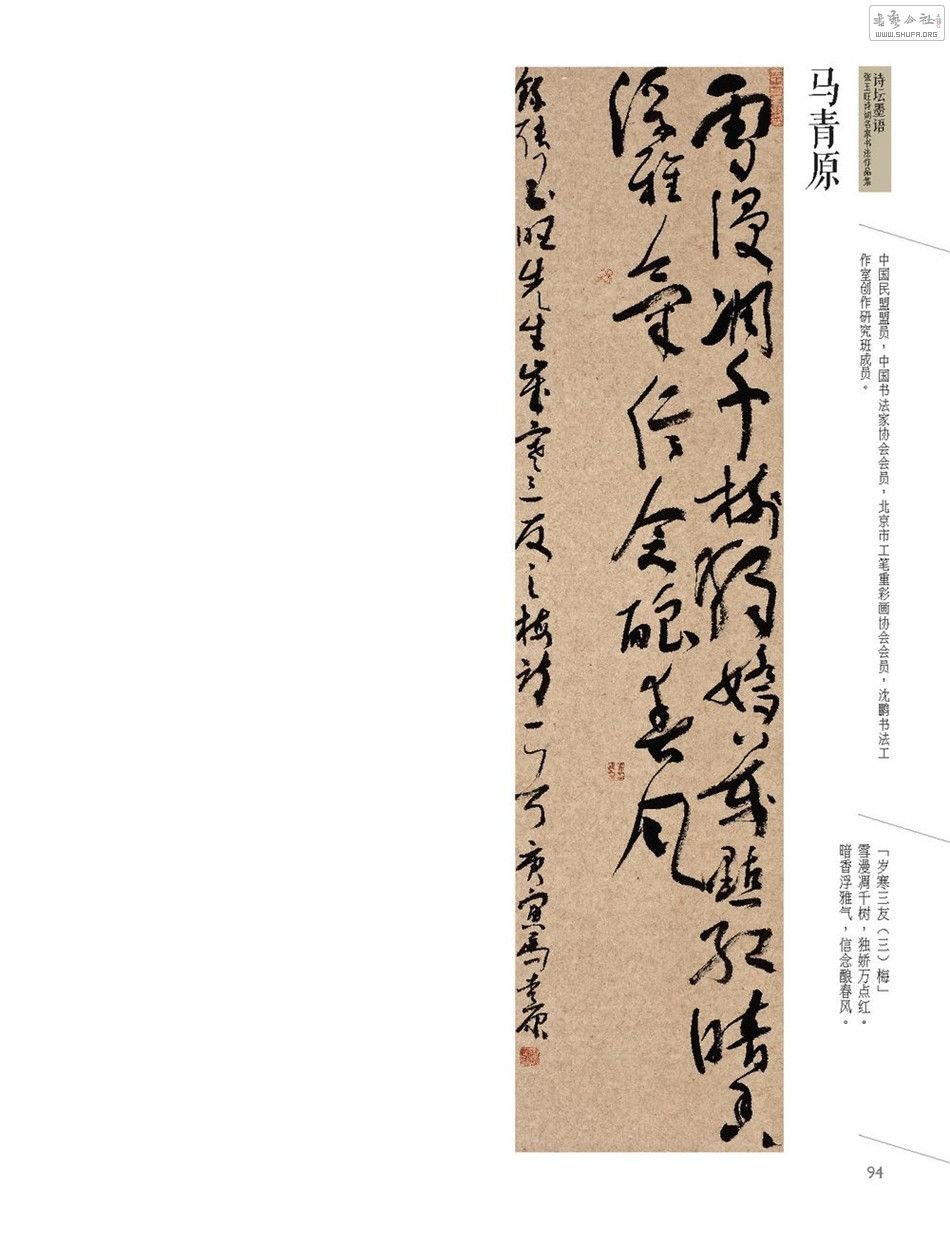 书艺公社
WWW.SHUFA.ORG
诗坛墨语
张玉旺诗词名家书法作品集
马青原
中国民盟盟员，中国书法家协会会员，北京市工笔重彩画协会会员，沈鹏书法工
作室创作研究班成员。
「岁寒三友（三）梅」
雪漫凋千树，独娇万点红。
暗香浮雅气，信念酿春风。
雪漫凋千树獨嬌萬點紅暗香
浮雅氣信念釀春风
錄張玉旺先生歲寒三友之梅詩一首庚寅馬青原
94